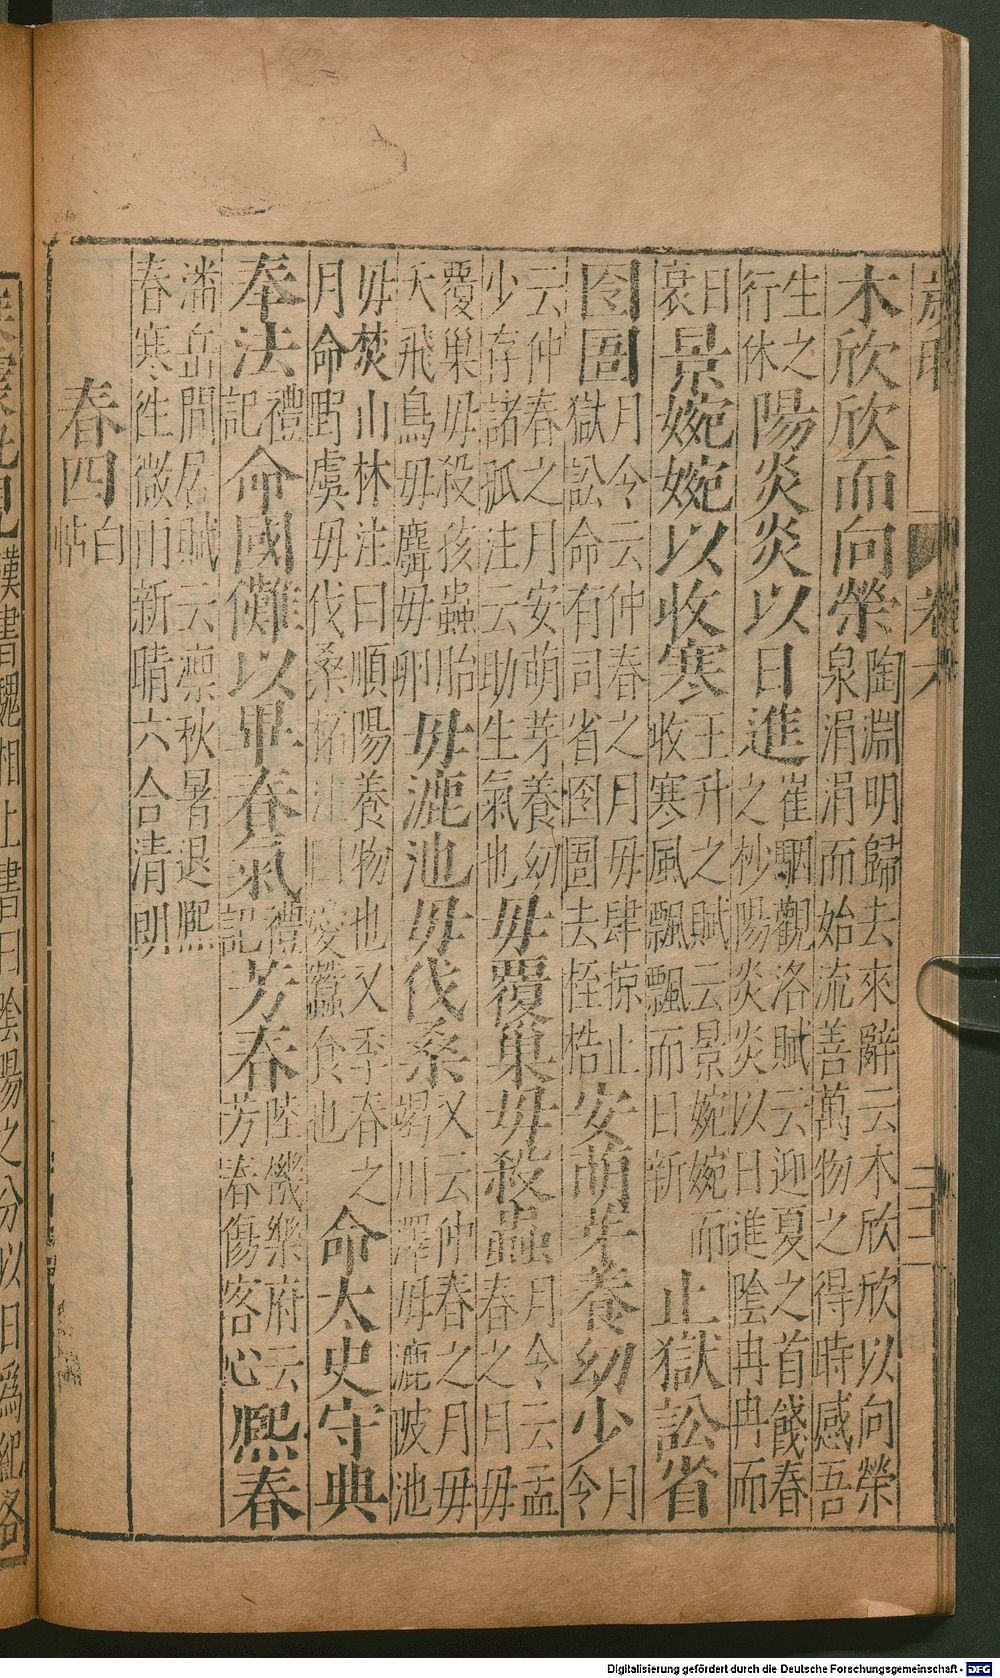 歲時 卷六
木欣欣而向榮 陶淵明歸去來辭云木欣欣以向榮泉涓涓而始流善萬物之得時感吾
生之行休 陽炎炎以日進 崔駰觀洛賦云迎夏之首餞春之杪陽炎炎以日進陰冉冉而
日衰 景婉婉以收寒 王升之賦云景婉婉而收寒風飄飄而日新 止獄訟省
囹圄 月令云仲春之月毋肆掠止獄訟命有司省囹圄去桎梏 安萌芽養幼少 月令
云仲春之月安萌芽養幼少存諸孤注云助生氣也 毋覆巢毋殺蟲 月令云孟春之月毋
覆巢毋殺孩蟲胎夭飛鳥毋麛毋卵 毋漉池毋伐桑 又云仲春之月毋竭川澤毋漉陂池
毋焚山林注曰順陽養物也又季春之月命野虞毋伐桑柘注曰愛蠶食也 命太史守典
奉法 禮記 命國儺以畢春氣 禮記 芳春 陸機樂府云芳春傷客心 熙春
潘岳閒居賦云凛秋暑退熙春寒往微雨新晴六合清朗
春四 白帖
漢書魏相上書曰陰陽之分以日爲紀
Digitalisierung gefördert durch die Deutsche Forschungsgemeinschaft - DFG